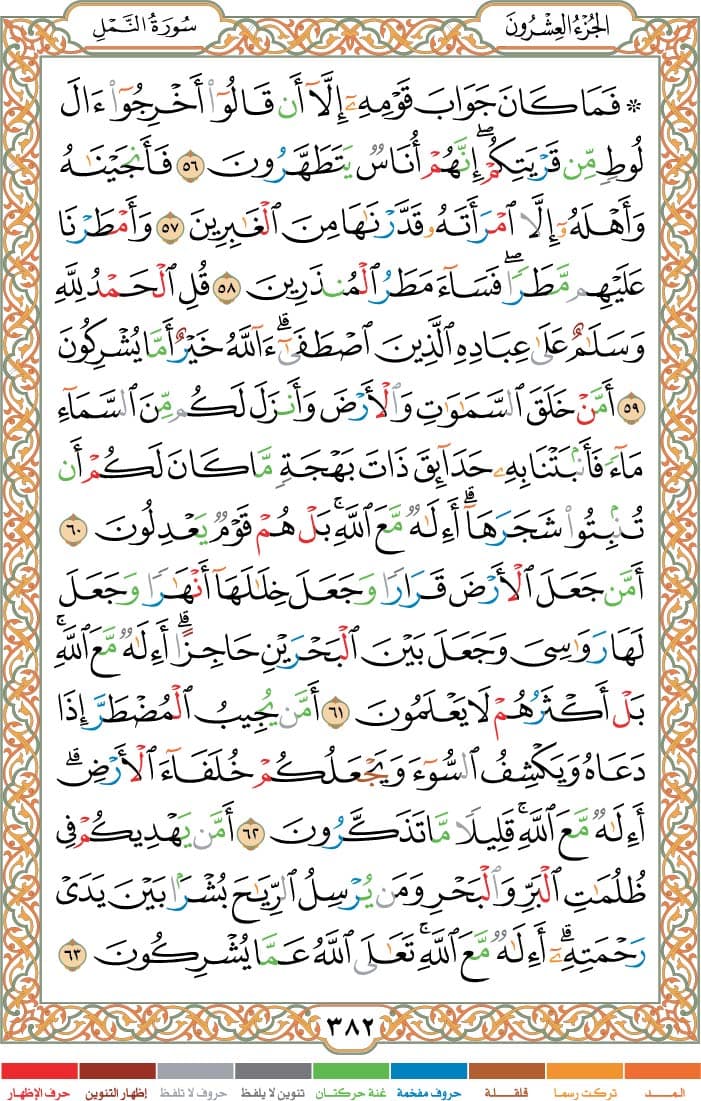 الجُزْءُ العِشْرُونَ
سُورَةُ النَّمْلِ
* فَمَا كَانَ جَوَابَ قَوْمِهِۦٓ إِلَّآ أَن قَالُوٓا۟ أَخْرِجُوٓا۟ ءَالَ
لُوطٍ مِّن قَرْيَتِكُمْ ۖ إِنَّهُمْ أُنَاسٌ يَتَطَهَّرُونَ ٥٦ فَأَنجَيْنَٰهُ
وَأَهْلَهُۥٓ إِلَّا ٱمْرَأَتَهُۥ قَدَّرْنَٰهَا مِنَ ٱلْغَٰبِرِينَ ٥٧ وَأَمْطَرْنَا
عَلَيْهِم مَّطَرًا ۖ فَسَآءَ مَطَرُ ٱلْمُنذَرِينَ ٥٨ قُلِ ٱلْحَمْدُ لِلَّهِ
وَسَلَٰمٌ عَلَىٰ عِبَادِهِ ٱلَّذِينَ ٱصْطَفَىٰٓ ۗ ءَآللَّهُ خَيْرٌ أَمَّا يُشْرِكُونَ
٥٩ أَمَّنْ خَلَقَ ٱلسَّمَٰوَٰتِ وَٱلْأَرْضَ وَأَنزَلَ لَكُم مِّنَ ٱلسَّمَآءِ
مَآءً فَأَنۢبَتْنَا بِهِۦ حَدَآئِقَ ذَاتَ بَهْجَةٍ مَّا كَانَ لَكُمْ أَن
تُنۢبِتُوا۟ شَجَرَهَآ ۗ أَءِلَٰهٌ مَّعَ ٱللَّهِ ۚ بَلْ هُمْ قَوْمٌ يَعْدِلُونَ ٦٠
أَمَّن جَعَلَ ٱلْأَرْضَ قَرَارًا وَجَعَلَ خِلَٰلَهَآ أَنْهَٰرًا وَجَعَلَ
لَهَا رَوَٰسِىَ وَجَعَلَ بَيْنَ ٱلْبَحْرَيْنِ حَاجِزًا ۗ أَءِلَٰهٌ مَّعَ ٱللَّهِ ۚ
بَلْ أَكْثَرُهُمْ لَا يَعْلَمُونَ ٦١ أَمَّن يُجِيبُ ٱلْمُضْطَرَّ إِذَا
دَعَاهُ وَيَكْشِفُ ٱلسُّوٓءَ وَيَجْعَلُكُمْ خُلَفَآءَ ٱلْأَرْضِ ۗ
أَءِلَٰهٌ مَّعَ ٱللَّهِ ۚ قَلِيلًا مَّا تَذَكَّرُونَ ٦٢ أَمَّن يَهْدِيكُمْ فِى
ظُلُمَٰتِ ٱلْبَرِّ وَٱلْبَحْرِ وَمَن يُرْسِلُ ٱلرِّيَٰحَ بُشْرًۢا بَيْنَ يَدَىْ
رَحْمَتِهِۦٓ ۗ أَءِلَٰهٌ مَّعَ ٱللَّهِ ۚ تَعَٰلَى ٱللَّهُ عَمَّا يُشْرِكُونَ ٦٣
٣٨٢
المـــد
تركت رسما
قلقلة
حروف مفخمة
غنة حركتان
تنوين لا يلفظ
حروف لا تلفظ
إظهار التنوين
حرف الإظهار